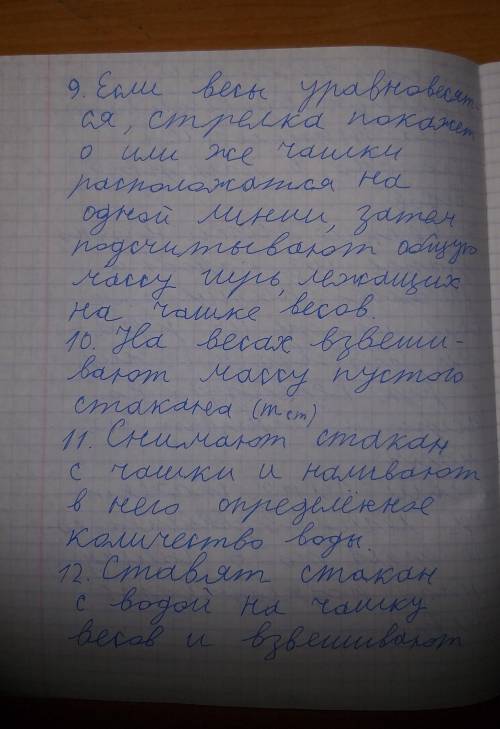 9. Если весы уравновесят-
ся, стрелка покажет
0 или же чашки
расположатся на
одной линии, затем
подсчитывают общую
массу гирь, лежащих
на чашке весов.
10. На весах взвеши-
вают массу пустого
стакана (m ст)
11. Снимают стакан
с чашки и наливают
в него определённое
количество воды.
12. Ставят стакан
с водой на чашку
весов и взвешивают